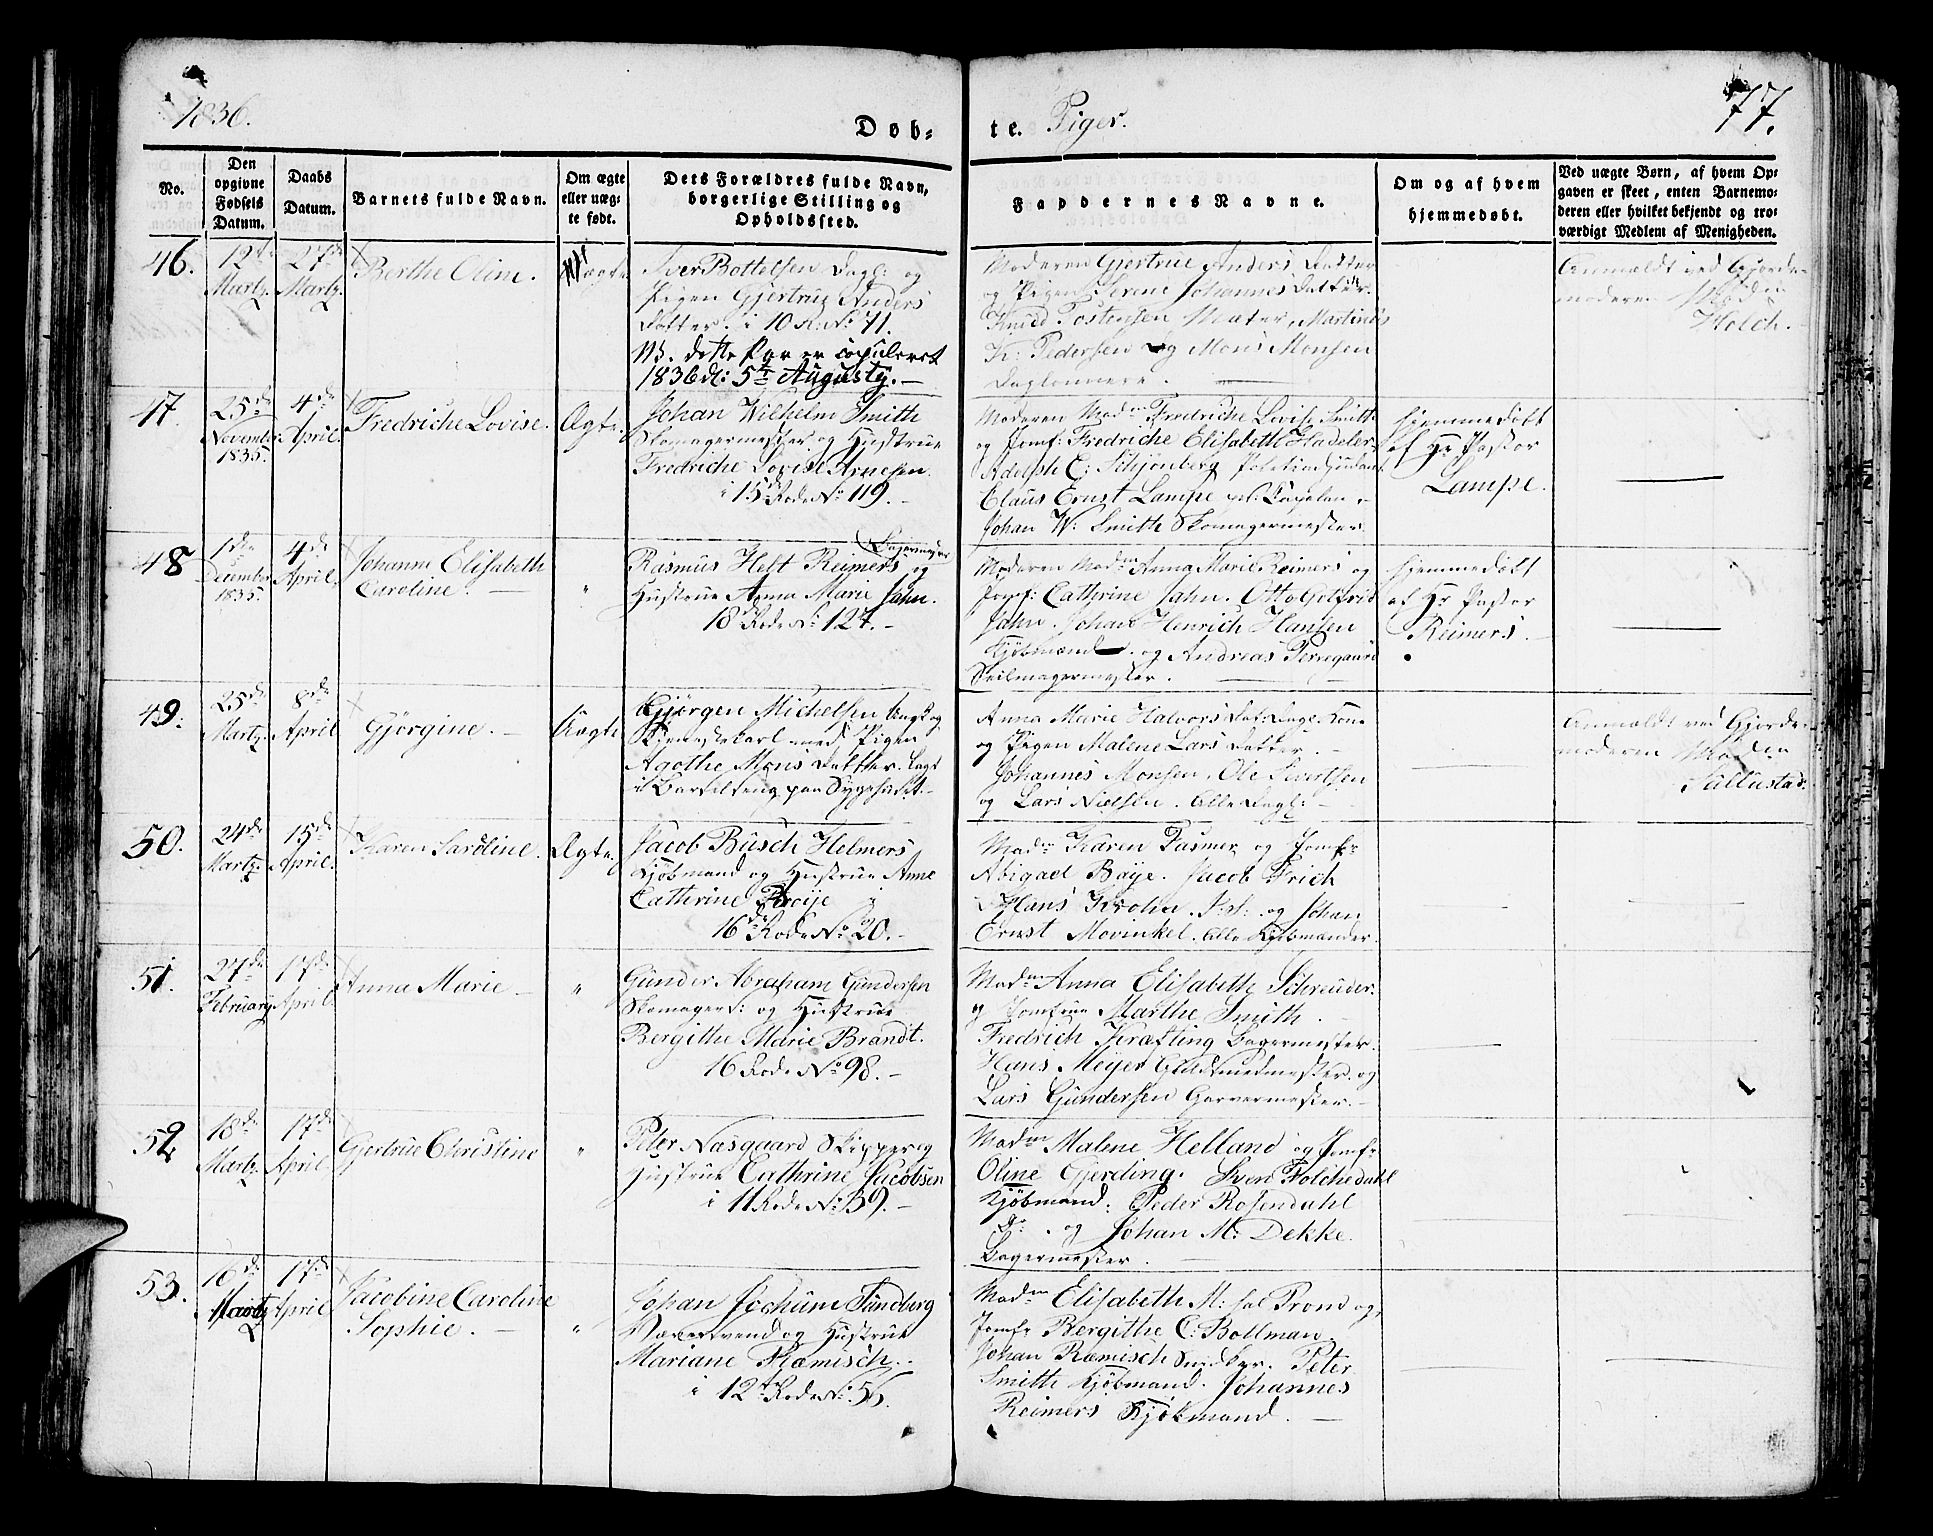 1836.
Døb-
te. Piger.
77.
No.
Den opgivne Fødsels Datum.
Daabs Datum.
Barnets fulde Navn.
Om ægte eller uægte født.
Dets Forældres fulde Navn, borgerlige Stilling og Opholdssted.
Faddernes Navne.
Om og af hvem hjemmedøbt.
Ved uægte Børn, af hvem Opgaven er skeet, enten Barnemoderen eller hvilket bekjendt og troværdigt Medlem af Menigheden.
46. 12te Martz. 27de Martz. Berthe Oline. Uægte
Iver Bottelsen Dagl: og
Pigen Gjertrue Anders
Datter. i 10 R: No 71.
NB. dette Par er copuleret
1836 d: 5te Augusty.
Moderen Gjertrue Anders Datter
og Pigen Serene Johannes Datter.
Knud Tostensen Mæter, Martinus
K: Pedersen og Mons Monsen
Daglønnere.
Anmeldt ved Gjorde-
moderen Mad:
Holch.
47. 25de November 1835. 4de April. Fredriche Lovise. Ægte.
Johan Wilhelm Smith
Skomagermester og Hustrue
Fredriche Lovise Arnesen.
i 15de Rode No 119.
Moderen Madm Fredriche Lovise Smith
og Jomf: Fredriche Elisabeth Hadeler.
Adolph C: Schjønberg
Claus Ernst Lampe
Johan W: Smith Skomagermester.
Hjemmedøbt
af Hr Pastor
Lampe.
48 1de December 1835. 4de April. Johanne Elisabeth
Caroline. "
Bagermester
Rasmus Heft Reimers og
Hustrue Anna Marie Jahn.
18de Rode No 124.
Moderen Madm Anna Marie Reimers og
Jomf: Cathrine Jahn. Otto Gotfrid
Jahn. Johan Henrich Hansen
Kjøbmand. og Andreas Perregaard
Seilmagermester.
Hjemmedøbt
af Hr Pastor
Reimers.
49. 25de Martz. 8de April Gjørgine. Uægte
Gjørgen Michelsen Ungk: og
Tjenestekarl med Pigen
Agothe Mons Datter.
paa Sygehuset.
Anna Marie Halvors Dat: Dagl: Kone
og Pigen Malene Lars Datter.
Johannes Monsen. Ole Sivertsen
og Lars Nielsen. Alle Dagl:
Anmeldt ved Gjorde-
moderen Mad:
Sallustad.
50. 24de Martz. 15de April. Karen Caroline. Ægte.
Jacob Busch Helmers
Kjøbmand og Hustrue Anne
Cathrine Broije i
16de Rode No 20.
Madm Karen Fasmer og Jomfr
Abigael Bøje. Jacob Frich
Hans Krohn. og Johan
Ernst Mowinkel. Alle Kjøbmænder.
51. 27de February. 17de April. Anna Marie "
Gunder Abraham Gundersen
Skomagers: og Hustrue
Bergithe Marie Brandt.
16 Rode No 98.
Madm Anna Elisabeth Schreuder.
og Jomfrue Marthe Smith.
Fredrich Krafting Bagermester.
Hans Meyer Guldsmedmester. og
Lars Gundersen Garvermester.
52 18de Martz. 17de April. Gjertrue Christine "
Peter Nasgaard Skipper og
Hustrue Cathrine Jacobsen
i 11 Rode No: 39.
Madm Malene Helland og Jomfr
Oline Gjerding. Sverd Folchedahl
Kjøbmand. Peder Rosendahl
Do: og Johan M: Dekke.
Bagermester.
53. 16de Martz 17de April Jacobine Caroline
Sophie. "
Johan Jochum Sundberg
Væversvend og Hustrue
Mariane Ræmisch.
i 12te Rode No: 56.
Madm Elisabeth M: sal Trond og
Jomfr Bergithe C: Bollman.
Johan Ræmisch Snedker. Peter
Smith Kjøbmand. Johannes
Reimers Kjøbmand.